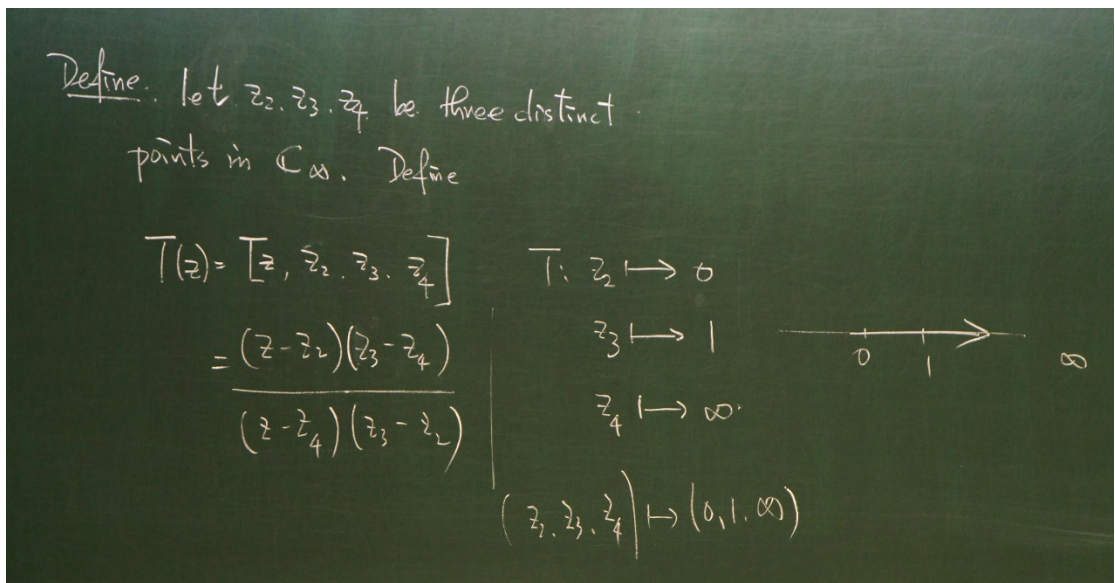 Define. let z₂, z₃, z₄ be three distinct
points in ℂ∞. Define
T(z) = [z, z₂, z₃, z₄]
= (z-z₂)(z₃-z₄) / (z-z₄)(z₃-z₂)
T: z₂ ↦ 0
z₃ ↦ 1
z₄ ↦ ∞.
(z₂, z₃, z₄) ↦ (0, 1, ∞)
0 1 ∞